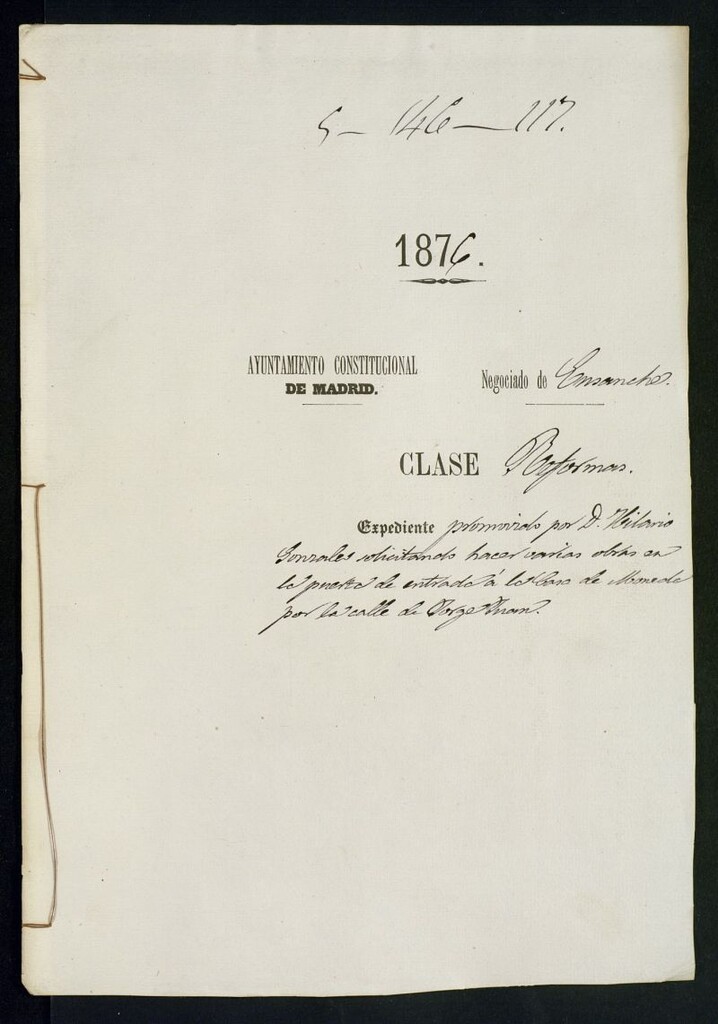 5 – 146 – 117.
1876.
AYUNTAMIENTO CONSTITUCIONAL
DE MADRID.
Negociado de Ensanche.
CLASE Reformas.
Expediente promovido por D. Hilario
Gonzales solicitando hacer varias obras en
la puerta de entrada á la Casa de Moneda
por la calle de Jorge Juan.